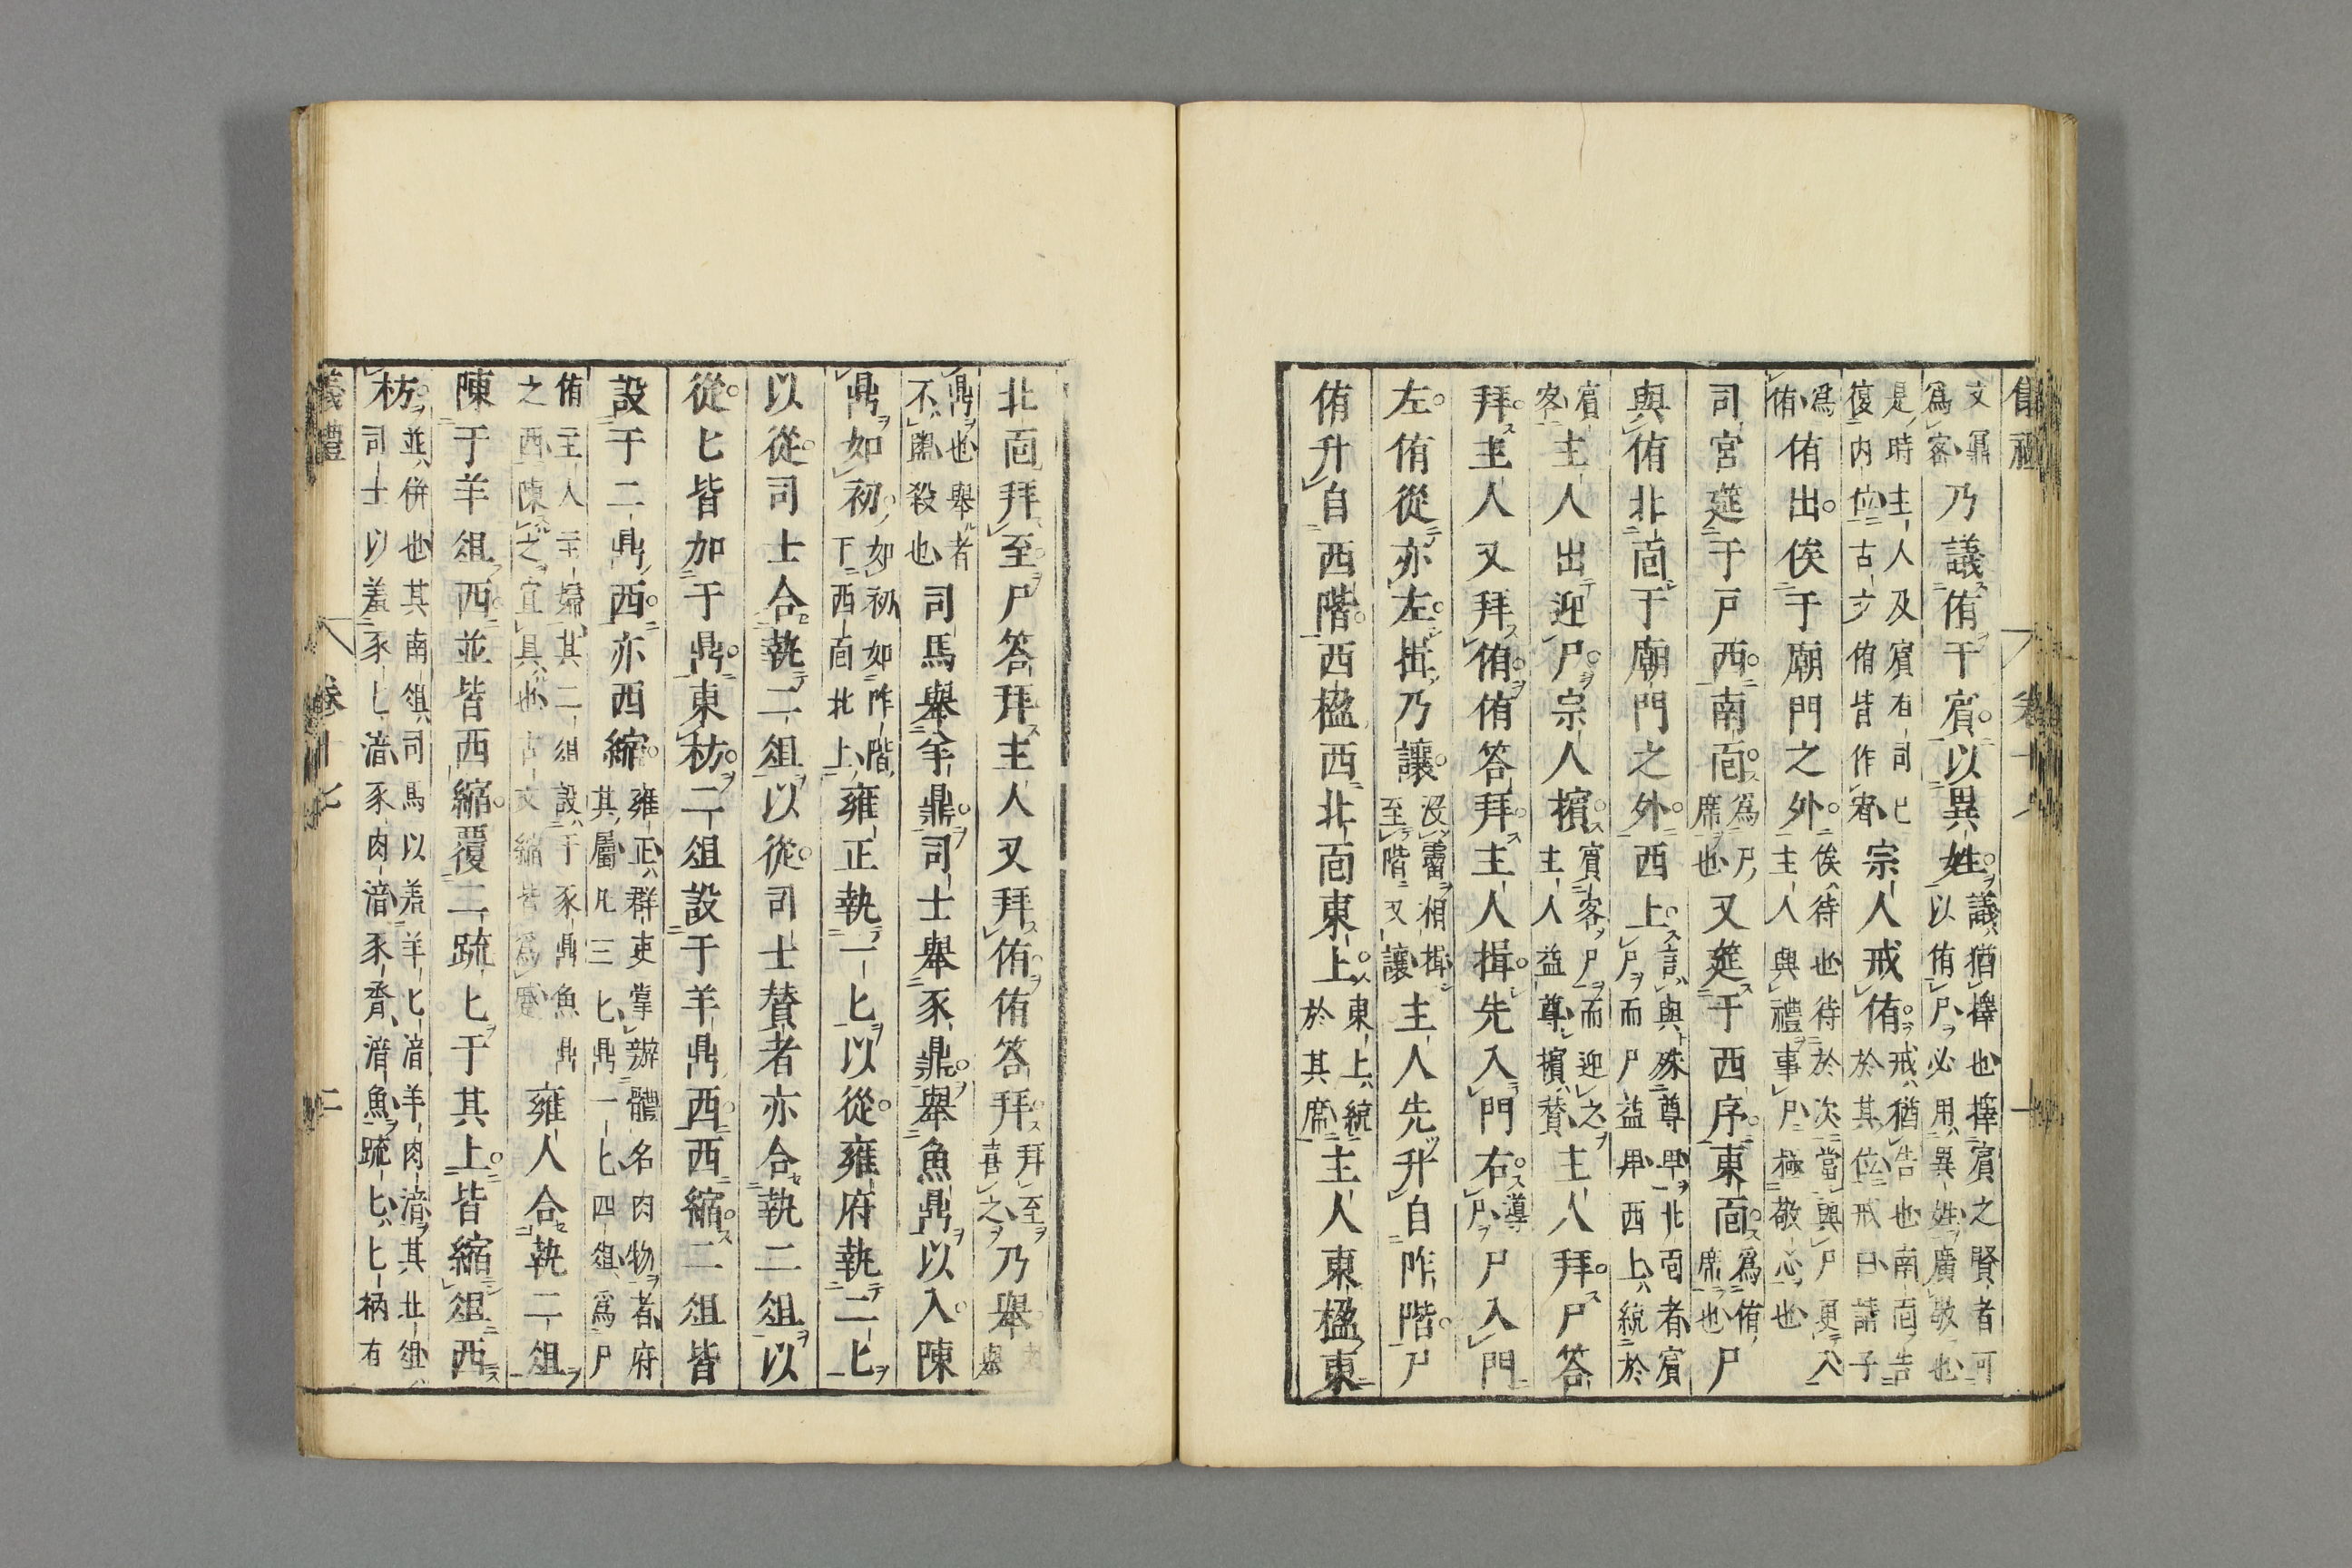 文鼏
爲密
乃議侑于賓以異姓
議猶擇也擇賓之賢者可
以侑尸必用異姓廣敬也
是時主人及賓有司已
復内位古文侑皆作宥
宗人戒侑
戒猶告也南面告
於其位戒曰請子
爲
侑
侑出俟于廟門之外
俟待也待於次當與尸更入
主人興禮事尸極敬心也
司宮筵于戸西南面
爲尸
席也
又筵于西序東面
爲侑
席也
尸
與侑北面于廟門之外西上
言與殊尊卑北面者賓
尸而尸益卑西上統於
賓
客
主人出迎尸宗人擯
賓客尸而迎之
主人益尊擯贊
主人拜尸答
拜主人又拜侑侑答拜主人揖先入門右
導
尸
尸入門
左侑從亦左揖乃讓
没霤相揖
至階又讓
主人先升自阼階尸
侑升自西階西楹西北面東上
東上統
於其席
主人東楹東
北面拜至尸答拜主人又拜侑侑答拜
拜至
喜之
乃舉
鼎也舉者
不盥殺也
司馬舉羊鼎司士舉豕鼎舉魚鼎以入陳
鼎如初
如初如阼階
下西面北上
雍正執一匕以從雍府執二匕
以從司士合執二俎以從司士贊者亦合執二俎以
從匕皆加于鼎東枋二俎設于羊鼎西西縮二俎皆
設于二鼎西亦西縮
雍正群吏掌辦體名肉物者府
其屬凡三匕鼎一匕四俎爲尸
侑主人主婦其二俎設于豕鼎魚鼎
之西陳之宜具也古文縮皆爲蹙
雍人合執二俎
陳于羊俎西並皆西縮覆二疏匕于其上皆縮俎西
枋
並併也其南俎司馬以羞羊匕湆羊肉湆其北俎
司士以羞豕匕湆豕肉湆豕脀湆魚疏匕匕柄有
儀禮 卷十七 二